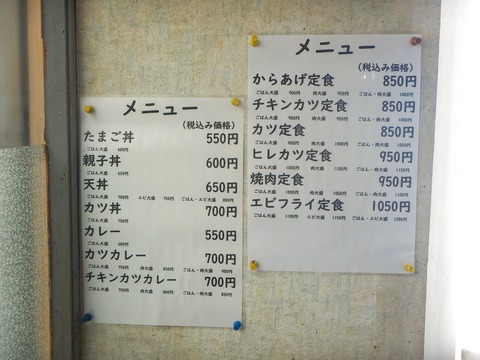 メニュー
(税込み価格)
たまご丼 550円
ごはん大盛 600円
親子丼 600円
ごはん大盛 650円
天丼 650円
ごはん大盛 700円 エビ大盛 750円 ごはん・エビ大盛 800円
カツ丼 700円
ごはん大盛 750円
カレー 550円
ごはん大盛 600円
カツカレー 700円
ごはん大盛 750円 肉大盛 850円 ごはん・肉大盛 900円
チキンカツカレー 700円
ごはん大盛 750円 肉大盛 800円 ごはん・肉大盛 850円
メニュー
(税込み価格)
からあげ定食 850円
ごはん大盛 900円 肉大盛 950円 ごはん・肉大盛 1000円
チキンカツ定食 850円
ごはん大盛 900円 肉大盛 950円 ごはん・肉大盛 1000円
カツ定食 850円
ごはん大盛 900円 肉大盛 ごはん・肉大盛
ヒレカツ定食 950円
ごはん大盛 1000円 肉大盛 1100円 ごはん・肉大盛 1150円
焼肉定食 950円
ごはん大盛 1000円 肉大盛 1050円 ごはん・肉大盛 1100円
エビフライ定食 1050円
ごはん大盛 1100円 エビ大盛 1150円 ごはん・エビ大盛 1200円